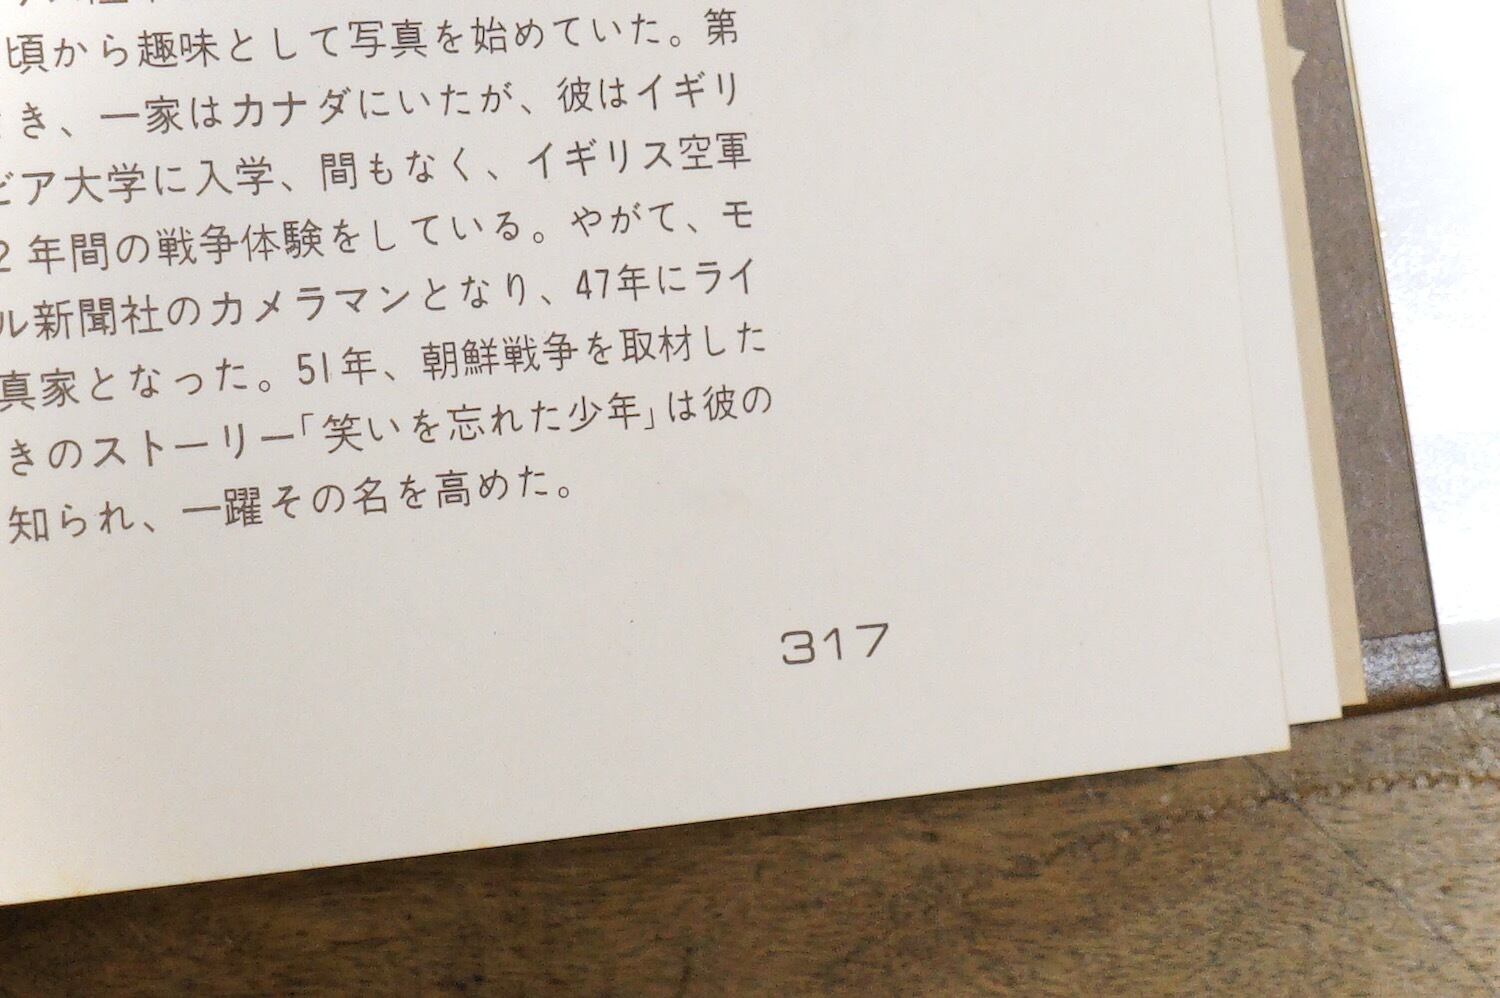 頃から趣味として写真を始めていた。第
き、一家はカナダにいたが、彼はイギリ
ビア大学に入学、間もなく、イギリス空軍
2年間の戦争体験をしている。やがて、モ
ル新聞社のカメラマンとなり、47年にライ
真家となった。51年、朝鮮戦争を取材した
きのストーリー「笑いを忘れた少年」は彼の
知られ、一躍その名を高めた。
317